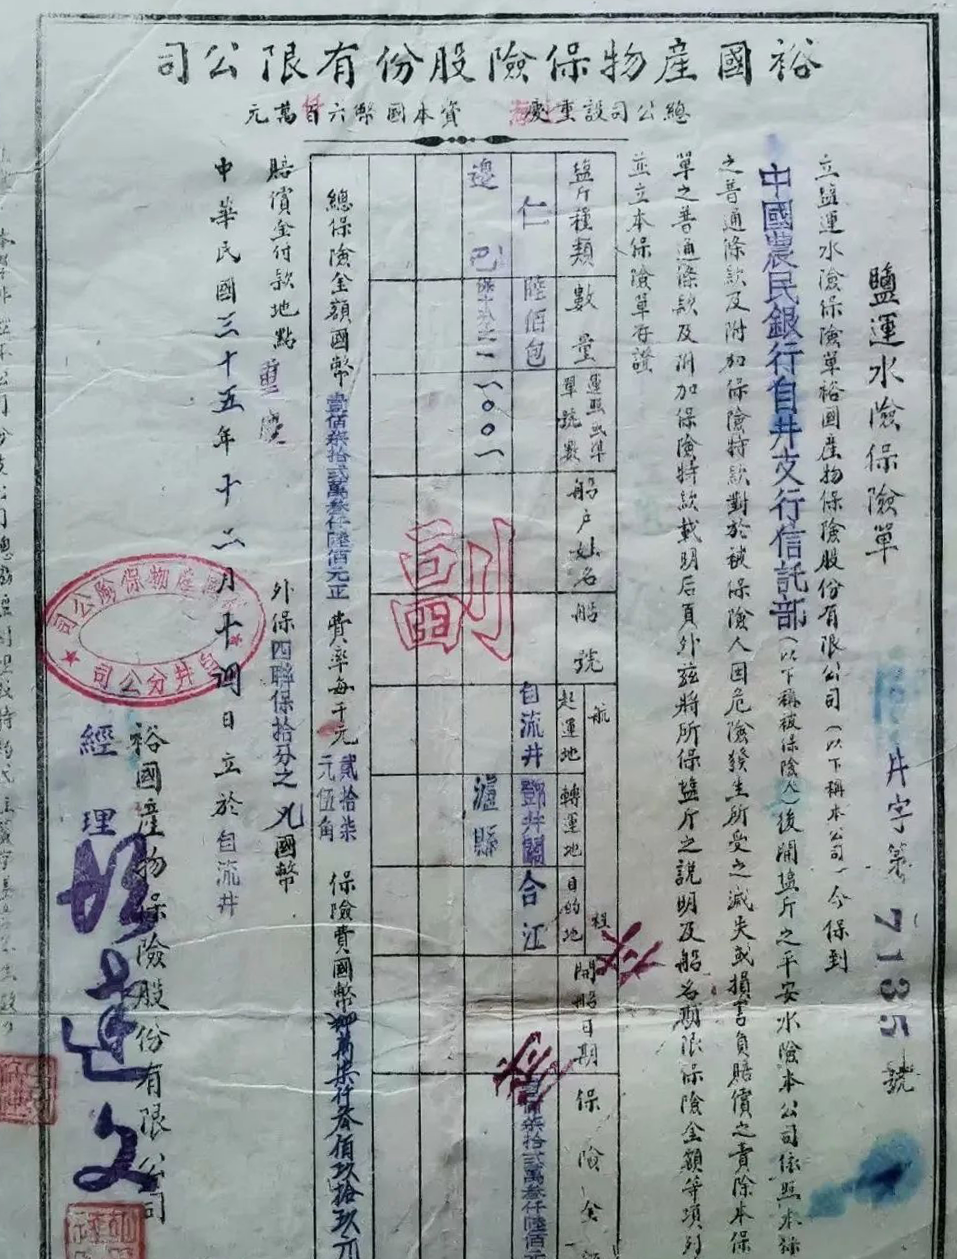 裕國產物保險股份有限公司
總公司設重慶 資本國幣六百萬元
鹽運水險保險單
井字第 7135 號
立鹽運水險保險單裕國產物保險股份有限公司（以下稱本公司）今保到
中國農民銀行自井支行信託部（以下稱被保險人）後開鹽斤之平安水險本公司依照本保
之普通條款及附加保險特款對於被保險人因危險發生所受之滅失或損害負賠償之責除本保
單之普通條款及附加保險特款載明后頁外茲將所保鹽斤之說明及船名期限保險金額等項列
並立本保險單存證
鹽斤種類 數量 運照或準單號數 船戶姓名 船號 航程 起運地 轉運地 目的地 開船日期 保險金
仁 陸佰包 自流井 鄧井關 合江 壹佰柒拾貳萬叁仟陸佰元
邊 巴 一〇〇一 瀘縣
副
總保險金額國幣壹佰柒拾貳萬叁仟陸佰元正 費率每千元貳拾柒元伍角 保險費國幣肆萬柒仟叁佰玖拾玖元
賠償金付款地點 重慶 外保四聯保拾分之九國幣
中華民國三十五年十二月十四日立於自流井
裕國產物保險股份有限公司
經理
裕國產物保險公司
自井分公司